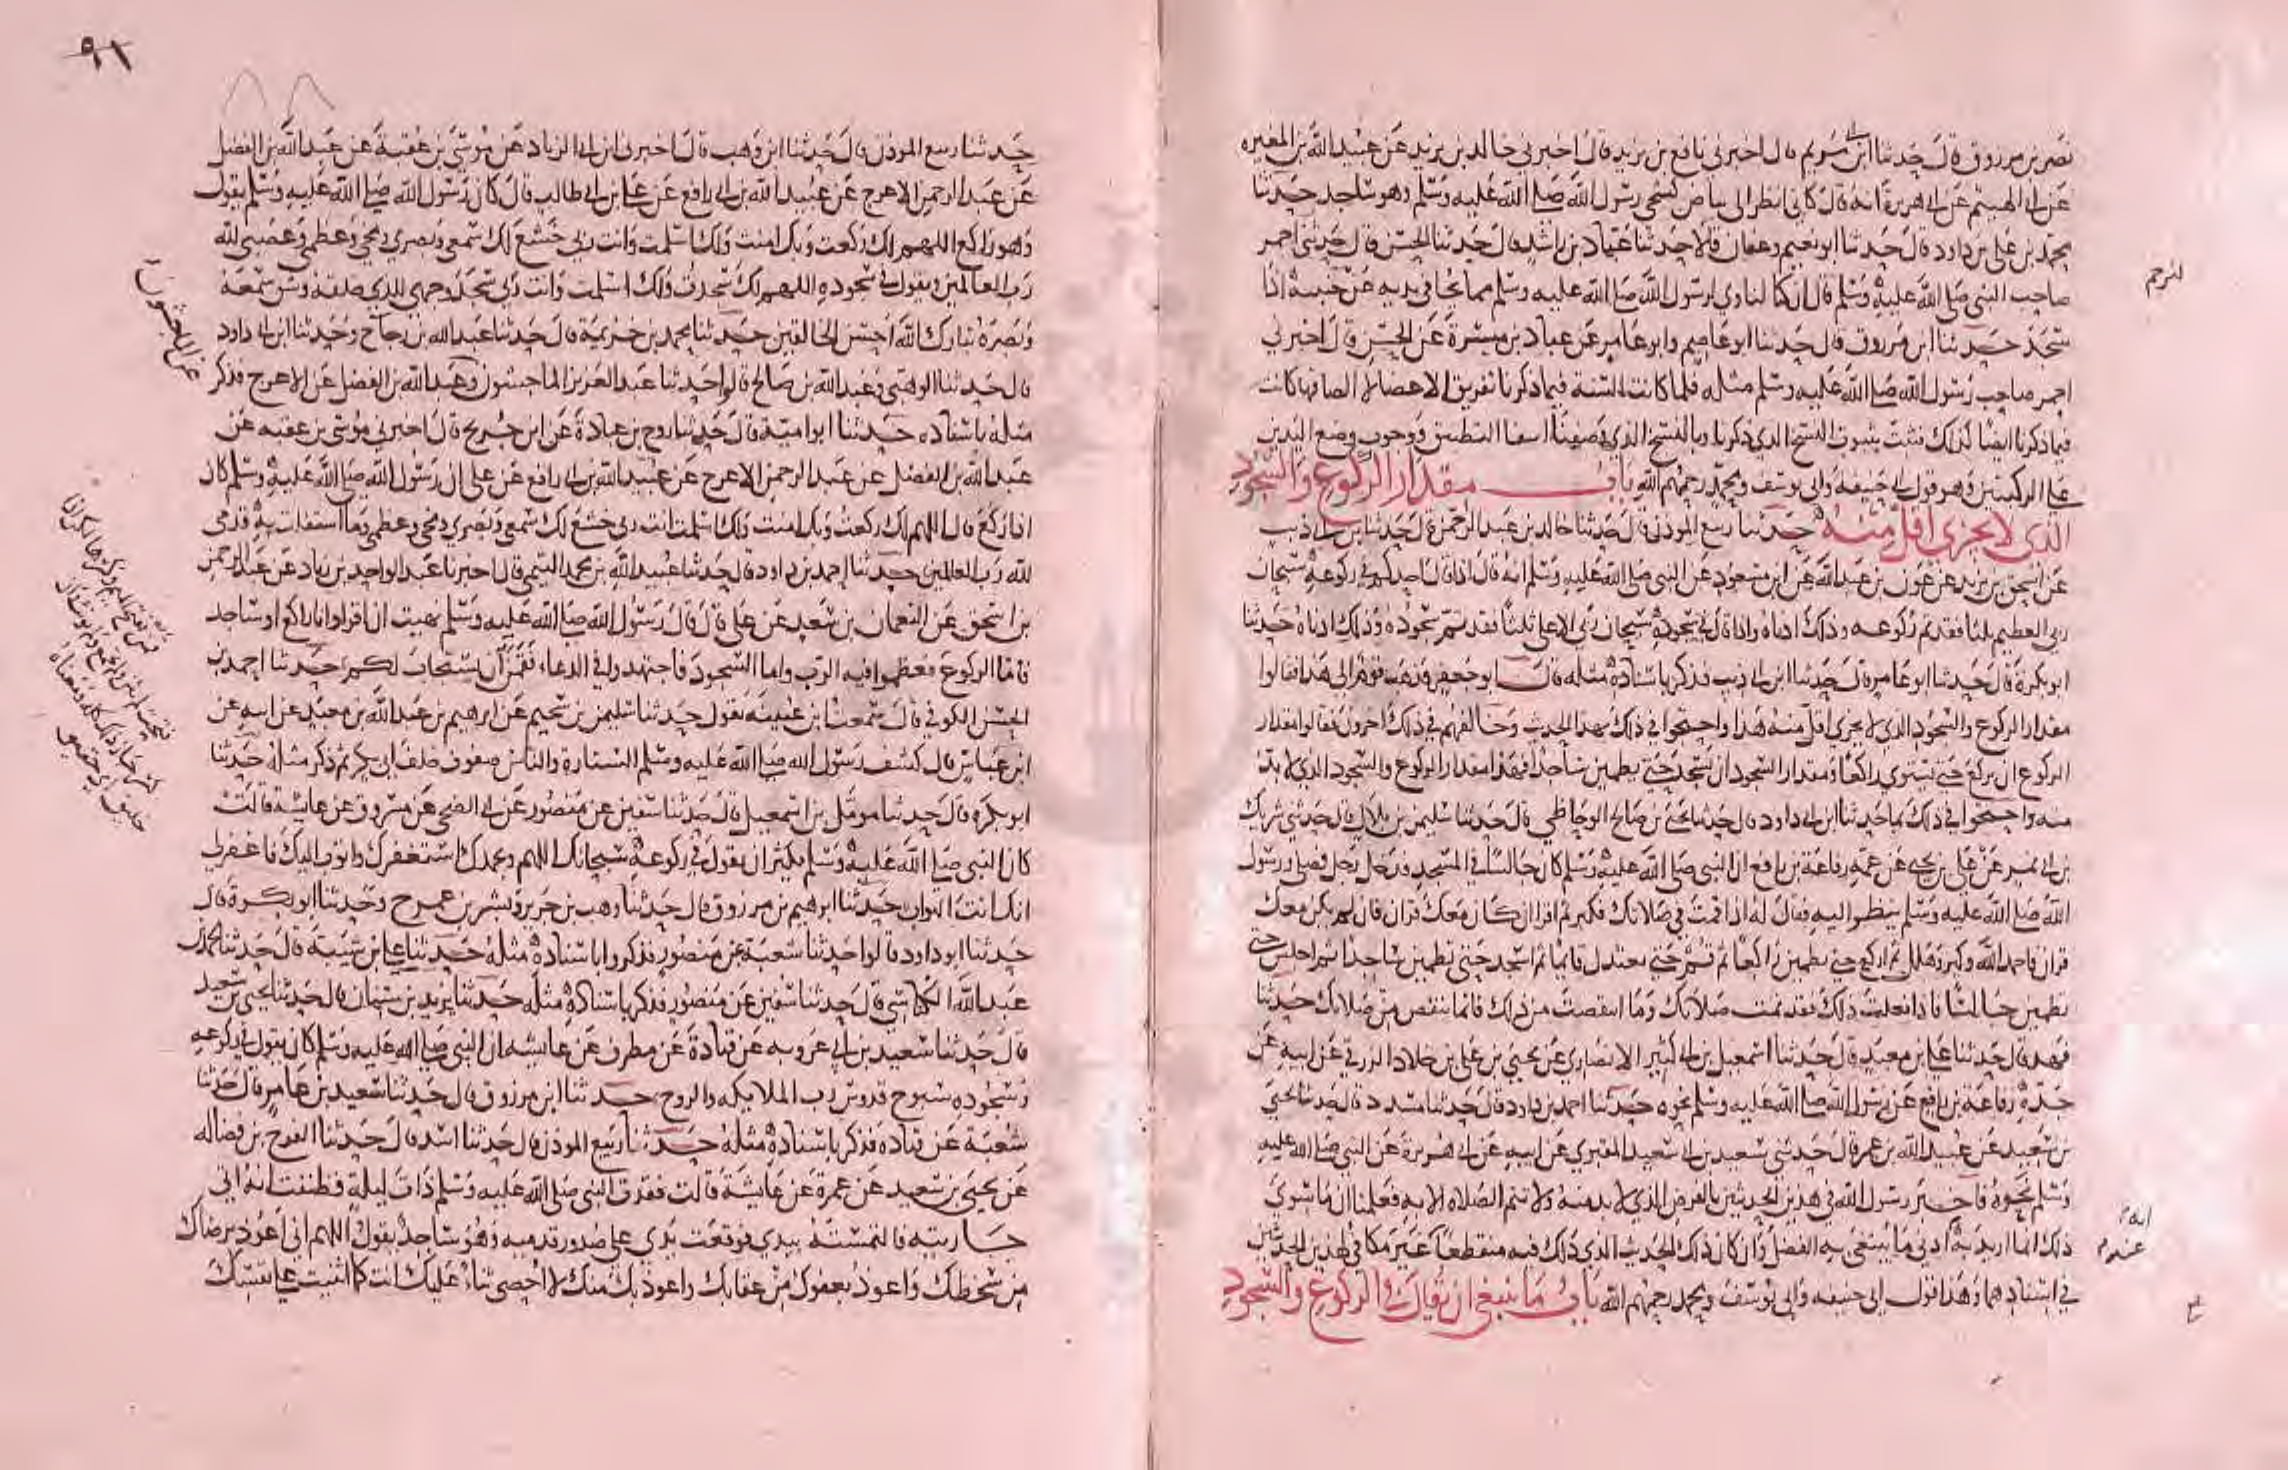 نصر بن مرزوق قال حدثنا ابن ابي مريم قال اخبرني نافع بن يزيد قال اخبرني خالد بن يزيد عن عبيد الله بن المغيره
عن ابي الهيثم عن ابي هريرة انه قال كاني انظر الى بياض كشحي رسول الله صلى الله عليه وسلم وهو ساجد حدثنا
محمد بن علي بن داود قال حدثنا ابو نعيم وعفان قالا حدثنا عباد بن راشد قال حدثنا الحسن قال حدثني احمر
صاحب النبي صلى الله عليه وسلم قال ان كنا لناوي لرسول الله صلى الله عليه وسلم مما يجافي يديه عن جنبيه اذا
سجد حدثنا ابن مرزوق قال حدثنا ابو عاصم وابو عامر عن عباد بن ميسرة عن الحسن قال اخبرني
احمر صاحب رسول الله صلى الله عليه وسلم مثله فلما كانت السنة فيما ذكرنا تفريق الاعضا لا الصاقها كانت
فيما ذكرنا ايضا كذلك فثبت بثبوت النسخ الذي ذكرنا وبالنسخ الذي وصفنا انتفا التطبيق ووجوب وضع اليدين
على الركبتين وهو قول ابي حنيفه وابي يوسف ومحمد رحمهم الله باب مقدار الركوع والسجود
الذي لا يجزي اقل منه حدثنا ربيع الموذن قال حدثنا خالد بن عبد الرحمن قال حدثنا ابن ابي ذيب
عن اسحق بن يزيد عن عون بن عبد الله عن ابن مسعود عن النبي صلى الله عليه وسلم انه قال اذا قال احدكم في ركوعه سبحان
ربي العظيم ثلثا فقد تم ركوعه وذلك ادناه واذا قال في سجوده سبحان ربي الاعلى ثلثا فقد تم سجوده وذلك ادناه حدثنا
ابو بكرة قال حدثنا ابو عامر قال حدثنا ابن ابي ذيب فذكر باسناده مثله قال ابو جعفر فذهب قوم الى هذا فقالوا
مقدار الركوع والسجود الذي لا يجزي اقل منه هذا واحتجوا في ذلك بهذا الحديث وخالفهم في ذلك اخرون فقالوا مقدار
الركوع ان يركع حتى يستوي راكعا ومقدار السجود ان يسجد حتى يطمين ساجدا فهذا مقدار الركوع والسجود الذي لا بد
منه واحتجوا في ذلك بما حدثنا ابن ابي داود قال حدثنا يحيى بن صالح الوحاظي قال حدثنا سليمن بن بلال قال حدثني شريك
بن ابي نمير عن علي بن يحيى عن عمه رفاعة بن رافع ان النبي صلى الله عليه وسلم كان جالسا في المسجد فدخل رجل فصلى ورسول
الله صلى الله عليه وسلم ينظر اليه فقال له اذا قمت في صلاتك فكبر ثم اقرا ان كان معك قران فان لم يكن معك
قران فاحمد الله وكبر وهلل ثم اركع حتى تطمين راكعا ثم قم حتى تعتدل قايما ثم اسجد حتى تطمين ساجدا ثم اجلس حتى
تطمين جالسا فاذا فعلت ذلك فقد تمت صلاتك وما انتقصت من ذلك فانما تنتقص من صلاتك حدثنا
فهد قال حدثنا علي بن معبد قال حدثنا اسمعيل بن ابي كثير الانصاري عن يحيى بن علي بن خلاد الزرقي عن ابيه عن
جده رفاعة بن رافع عن رسول الله صلى الله عليه وسلم نحوه حدثنا احمد بن داود قال حدثنا مسدد قال حدثنا يحيى
بن سعيد عن عبيد الله بن عمر قال حدثني سعيد بن ابي سعيد المقبري عن ابيه عن ابي هريرة عن النبي صلى الله عليه
وسلم نحوه فاخبر رسول الله في هذين الحديثين بالفرض الذي لا بد منه ولا تتم الصلاه الا به فعلمنا ان ما سوى
ذلك انما اريد به ادنى ما يبتغى به الفضل وان كان ذلك الحديث الذي ذلك فيه منقطعا غير مكافي لهذين الحديثين
في اسنادهما وهذا قول ابي حنيفه وابي يوسف ومحمد رحمهم الله باب ما ينبغي ان يقال في الركوع والسجود
٩١
حدثنا ربيع الموذن قال حدثنا ابن وهب قال اخبرني ابن ابي الزناد عن موسى بن عقبة عن عبد الله بن الفضل
عن عبد الرحمن الاعرج عن عبيد الله بن ابي رافع عن علي بن ابي طالب قال كان رسول الله صلى الله عليه وسلم يقول
وهو راكع اللهم لك ركعت وبك امنت ولك اسلمت وانت ربي خشع لك سمعي وبصري ومخي وعظمي وعصبي لله
رب العالمين ويقول في سجوده اللهم لك سجدت ولك اسلمت وانت ربي سجد وجهي للذي خلقه وشق سمعه
وبصره تبارك الله احسن الخالقين حدثنا محمد بن خزيمة قال حدثنا عبد الله بن رجاح وحدثنا ابن ابي داود
قال حدثنا الوهبي وعبد الله بن صالح قالوا حدثنا عبد العزيز الماجشون وعبد الله بن الفضل عن الاعرج فذكر
مثله باسناده حدثنا ابو امية قال حدثنا روح بن عبادة عن ابن جريج قال اخبرني موسى بن عقبه عن
عبد الله بن الفضل عن عبد الرحمن الاعرج عن عبيد الله بن ابي رافع عن علي ان رسول الله صلى الله عليه وسلم كان
اذا ركع قال اللهم لك ركعت وبك امنت ولك اسلمت انت ربي خشع لك سمعي وبصري ومخي وعظمي وما استقلت به قدمي
لله رب العالمين حدثنا احمد بن داود قال حدثنا عبيد الله بن محمد التيمي قال اخبرنا عبد الواحد بن زياد عن عبد الرحمن
بن اسحق عن النعمان بن سعيد عن علي قال قال رسول الله صلى الله عليه وسلم نهيت ان اقرا وانا راكع او ساجد
فاما الركوع فعظموا فيه الرب واما السجود فاجتهدوا في الدعاء فقمن ان يستجاب لكم حدثنا احمد بن
الحسن الكوفي قال سمعت ابن عيينه يقول حدثنا سليمن بن سحيم عن ابرهيم بن عبد الله بن معبد عن ابيه عن
ابن عباس قال كشف رسول الله صلى الله عليه وسلم الستارة والناس صفوف خلف ابي بكر ثم ذكر مثله حدثنا
ابو بكره قال حدثنا مومل بن اسمعيل قال حدثنا سفين عن منصور عن ابي الضحى عن مسروق عن عايشة قالت
كان النبي صلى الله عليه وسلم يكثر ان يقول في ركوعه سبحانك اللهم وبحمدك استغفرك واتوب اليك فاغفر لي
انك انت التواب حدثنا ابرهيم بن مرزوق قال حدثنا وهب بن جرير وبشر بن عمر ح وحدثنا ابو بكرة قال
حدثنا ابو داود قالوا حدثنا شعبة عن منصور فذكروا باسناده مثله حدثنا علي بن شيبة قال حدثنا محمد بن
عبد الله الكناسي قال حدثنا سفين عن منصور فذكر باسناده مثله حدثنا يزيد بن سنان قال حدثنا يحيى بن سعيد
قال حدثنا سعيد بن ابي عروبه عن قتادة عن مطرف عن عايشه ان النبي صلى الله عليه وسلم كان يقول في ركوعه
وسجوده سبوح قدوس رب الملايكه والروح حدثنا ابن مرزوق قال حدثنا سعيد بن عامر قال حدثنا
شعبة عن قتاده فذكر باسناده مثله حدثنا ربيع الموذن قال حدثنا اسد قال حدثنا الفرج بن فضاله
عن يحيى بن سعيد عن عمرة عن عايشة قالت فقدت النبي صلى الله عليه وسلم ذات ليلة فظننت انه اتى
جاريته فالتمسته بيدي فوقعت يدي على صدور قدميه وهو ساجد يقول اللهم اني اعوذ برضاك
من سخطك واعوذ بعفوك من عقابك واعوذ بك منك لا احصي ثناء عليك انت كما اثنيت على نفسك
عن الماجشون